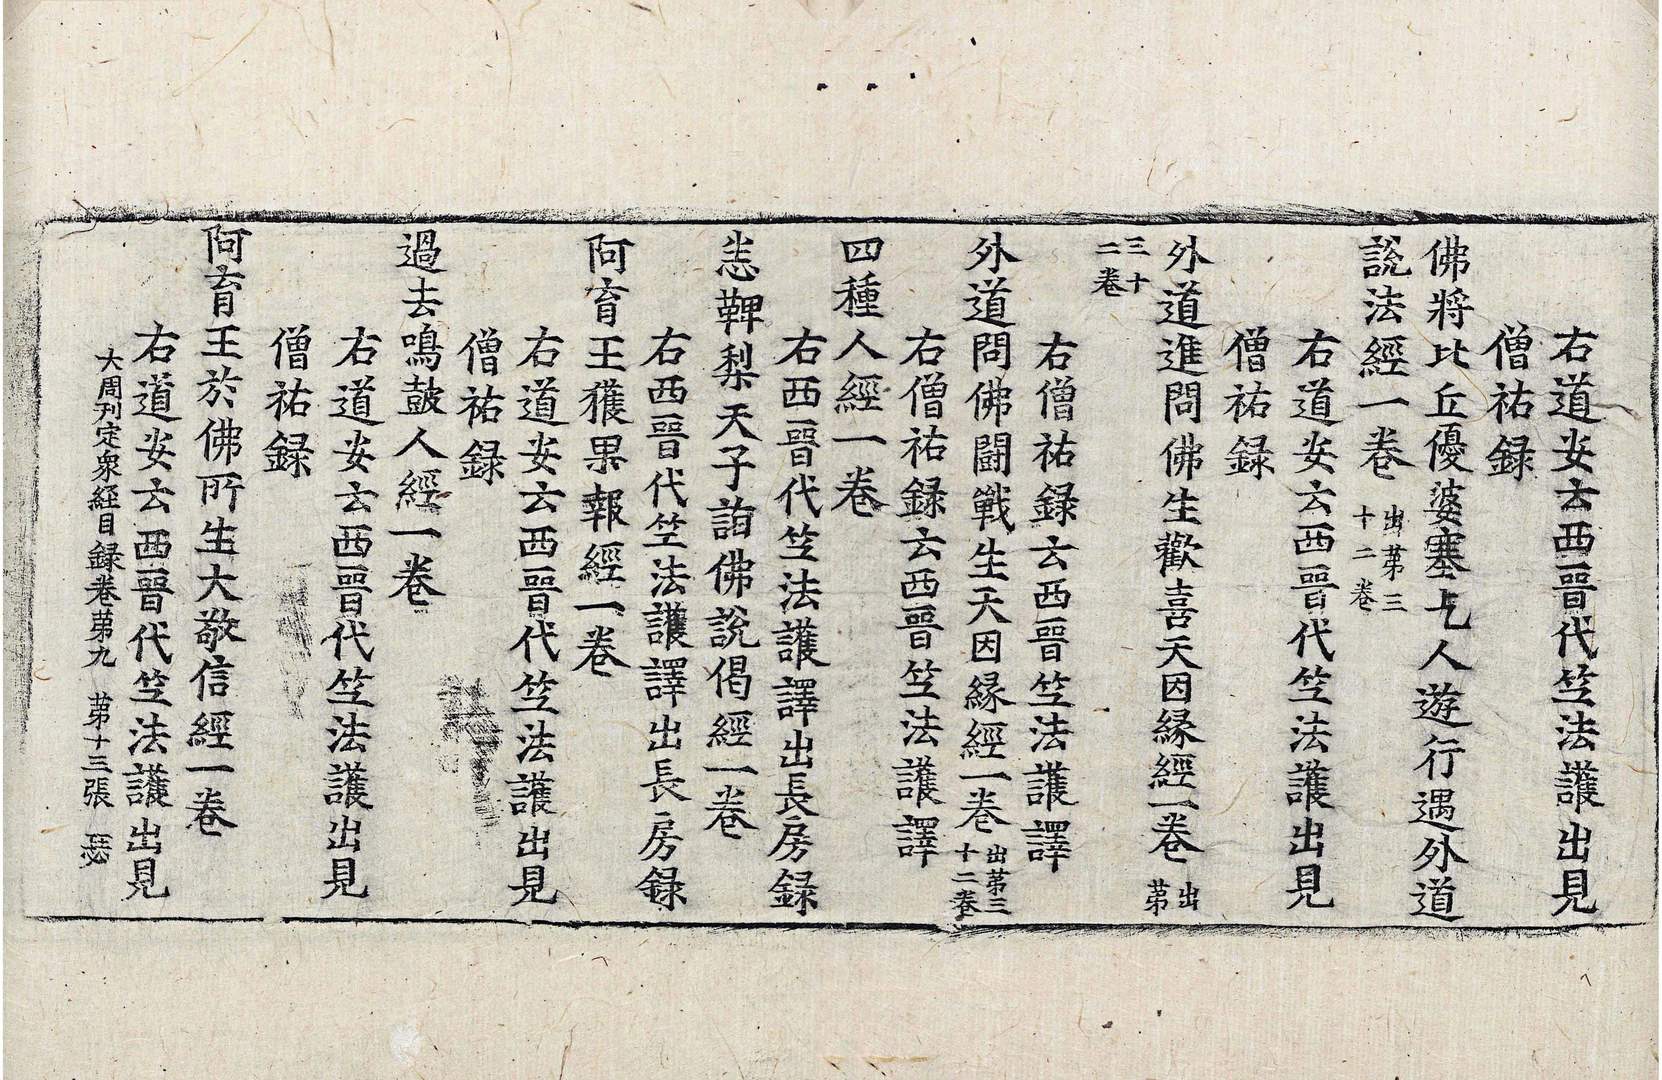 右道安云西晉代竺法護出見
僧祐録
佛將比丘優婆塞乞人遊行遇外道
說法經一卷 出第三十二卷
右道安云西晉代竺法護出見
僧祐録
外道進問佛生歡喜天因縁經一卷 出第
三十二卷
右僧祐録云西晉竺法護譯
外道問佛鬪戰生天因縁經一卷 出第三十二卷
右僧祐録云西晉竺法護譯
四種人經一卷
右西晉代竺法護譯出長房録
恙鞞梨天子詣佛說偈經一卷
右西晉代竺法護譯出長房録
阿育王獲果報經一卷
右道安云西晉代竺法護出見
僧祐録
過去鳴皷人經一卷
右道安云西晉代竺法護出見
僧祐録
阿育王於佛所生大敬信經一卷
右道安云西晉代竺法護出見
大周刊定衆經目録卷第九 第十三張